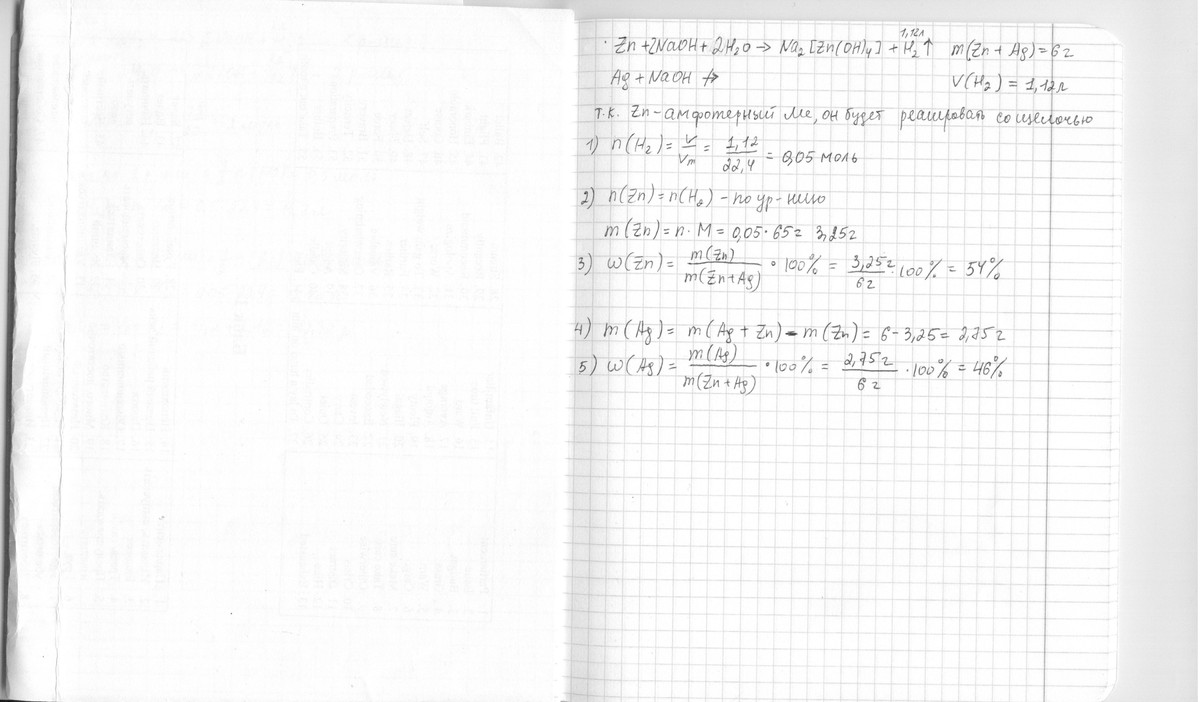 1,12л
Zn + 2NaOH + 2H2O → Na2[Zn(OH)4] + H2↑ m(Zn + Ag) = 6 г
Ag + NaOH ↛ V(H2) = 1,12л
т.к. Zn - амфотерный Ме, он будет реагировать со щелочью
1) n(H2) = V/Vm = 1,12/22,4 = 0,05 моль
2) n(Zn) = n(H2) - по ур-нию
m(Zn) = n · M = 0,05 · 65 = 3,25г
3) ω(Zn) = m(Zn)/m(Zn+Ag) · 100% = 3,25г/6г · 100% = 54%
4) m(Ag) = m(Ag + Zn) - m(Zn) = 6 - 3,25 = 2,75 г
5) ω(Ag) = m(Ag)/m(Zn+Ag) · 100% = 2,75г/6г · 100% = 46%